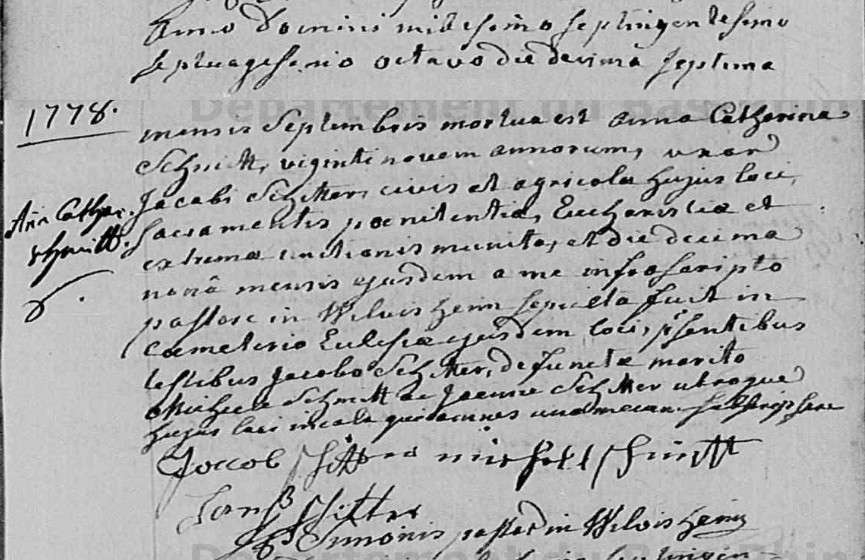 Anno Domini millesimo septingentesimo
septuagesimo octavo die decima septima
Departement du Bas-Rhin
1778.
mensis Septembris mortua est Anna Catharina
Schmitt, viginti novem annorum, uxor
Jacobi Schitter, civis et agricolæ hujus loci,
Ann Cathar.
Schmitt.
Sacramentis pœnitentiæ, Eucharistiæ et
extremæ unctionis munita, et die decima
nonâ mensis ejusdem a me infrascripto
pastore in Wilvisheim sepulta fuit in
cœmeterio Ecclesiæ ejusdem loci, psentibus
testibus Jacobo Schitter, defunctæ marito
Michaele Schmitt ac Joanne Schitter utroque
hujus loci incola qui omnes una mecum subscripsere
Joccob Schitter michell schmitt
Hanß schitter
Simonis pastor in Wilvisheim